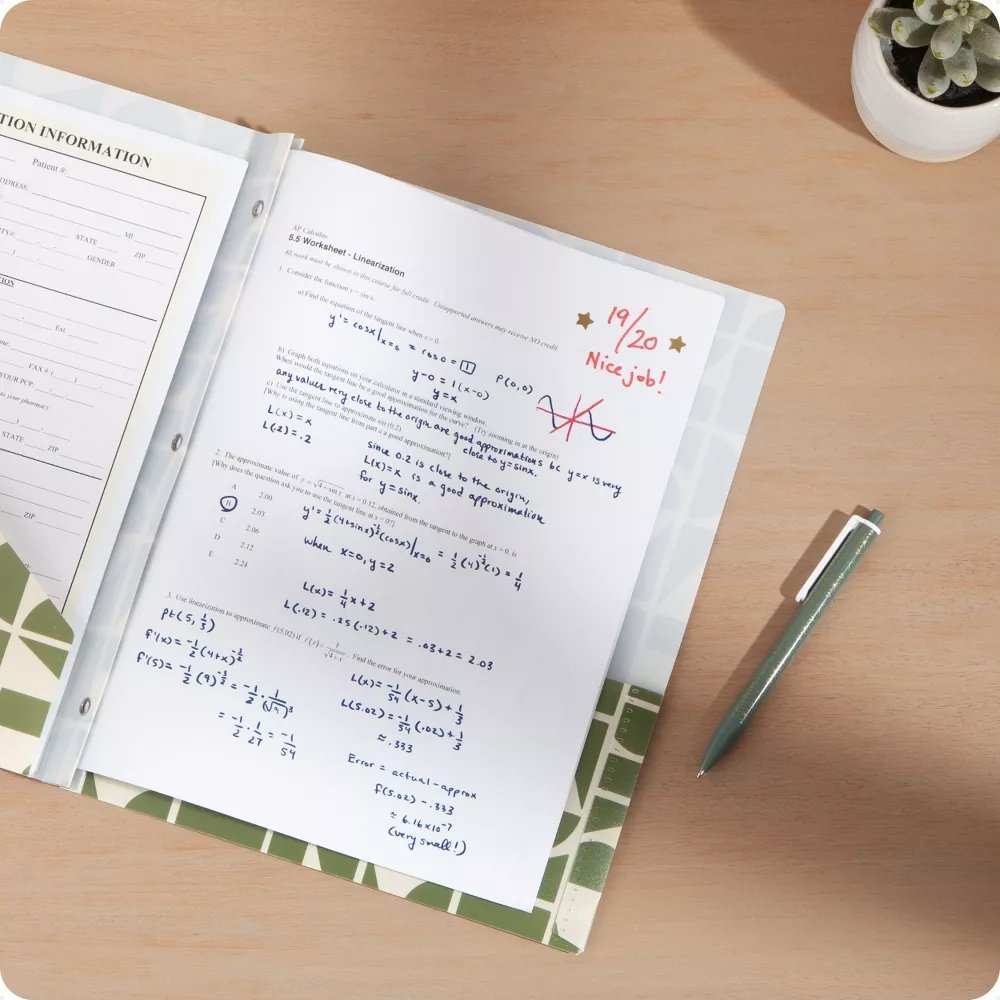 TION INFORMATION
Patient #:
DDRESS:
MI
STATE
ZIP
GENDER
Ext.
FAX # (
YOUR PCP:
to your pharmacy
STATE
ZIP
ZIP
AP Calculus
5.5 Worksheet - Linearization
All work must be shown in this course for full credit. Unsupported answers may receive NO credit.
19/20
Nice job!
1. Consider the function y = sin x.
a) Find the equation of the tangent line when x = 0.
y' = cosx|x=0 = cos0 = 1
P(0,0)
y-0 = 1(x-0)
y=x
b) Graph both equations on your calculator in a standard viewing window.
When would the tangent line be a good approximation for the curve? (Try zooming in at the origin)
any values very close to the origin are good approximations bc y=x is very
close to y=sinx.
c) Use the tangent line to approximate sin (0.2).
[Why is using the tangent line from part a a good approximation?]
L(x) = x
L(2) = .2
since 0.2 is close to the origin,
L(x)=x is a good approximation
for y=sinx.
2. The approximate value of y = √4+sin x at x = 0.12, obtained from the tangent to the graph at x = 0, is
[Why does the question ask you to use the tangent line at x = 0?]
A 2.00
B 2.03
C 2.06
D 2.12
E 2.24
y' = ½(4+sinx)^-½(cosx)|x=0 = ½(4)^-½(1) = ¼
when x=0, y=2
L(x) = ¼x+2
L(.12) = .25(.12)+2 = .03+2 = 2.03
3. Use linearization to approximate f(5.02) if f(x) = 1/√4+x. Find the error for your approximation.
pt(5, ⅓)
f'(x) = -½(4+x)^-3/2
f'(5) = -½(9)^-3/2 = -½ · 1/(√9)³
= -½ · 1/27 = -1/54
L(x) = -1/54(x-5) + ⅓
L(5.02) = -1/54(.02) + ⅓
≈ .333
Error = actual - approx
f(5.02) - .333
≈ 6.16×10⁻⁷
(very small!)